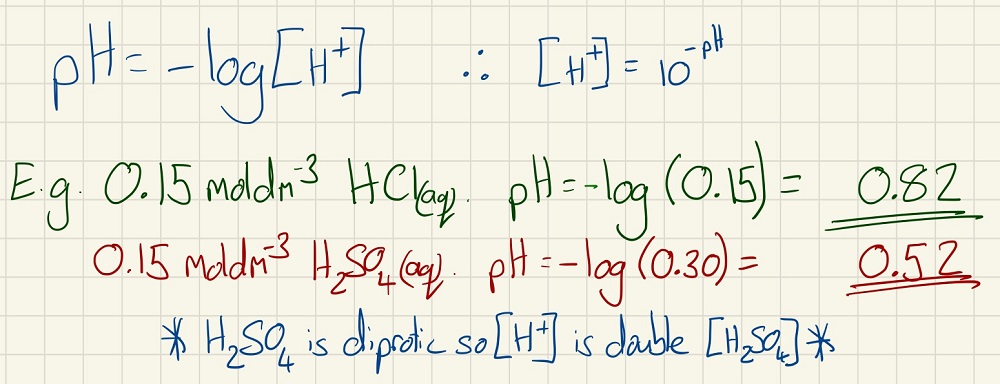 pH = -log[H⁺] ∴ [H⁺] = 10⁻ᵖᴴ
E.g. 0.15 moldm⁻³ HCl(aq). pH = -log(0.15) = 0.82
0.15 moldm⁻³ H₂SO₄(aq). pH = -log(0.30) = 0.52
* H₂SO₄ is diprotic so [H⁺] is double [H₂SO₄] *